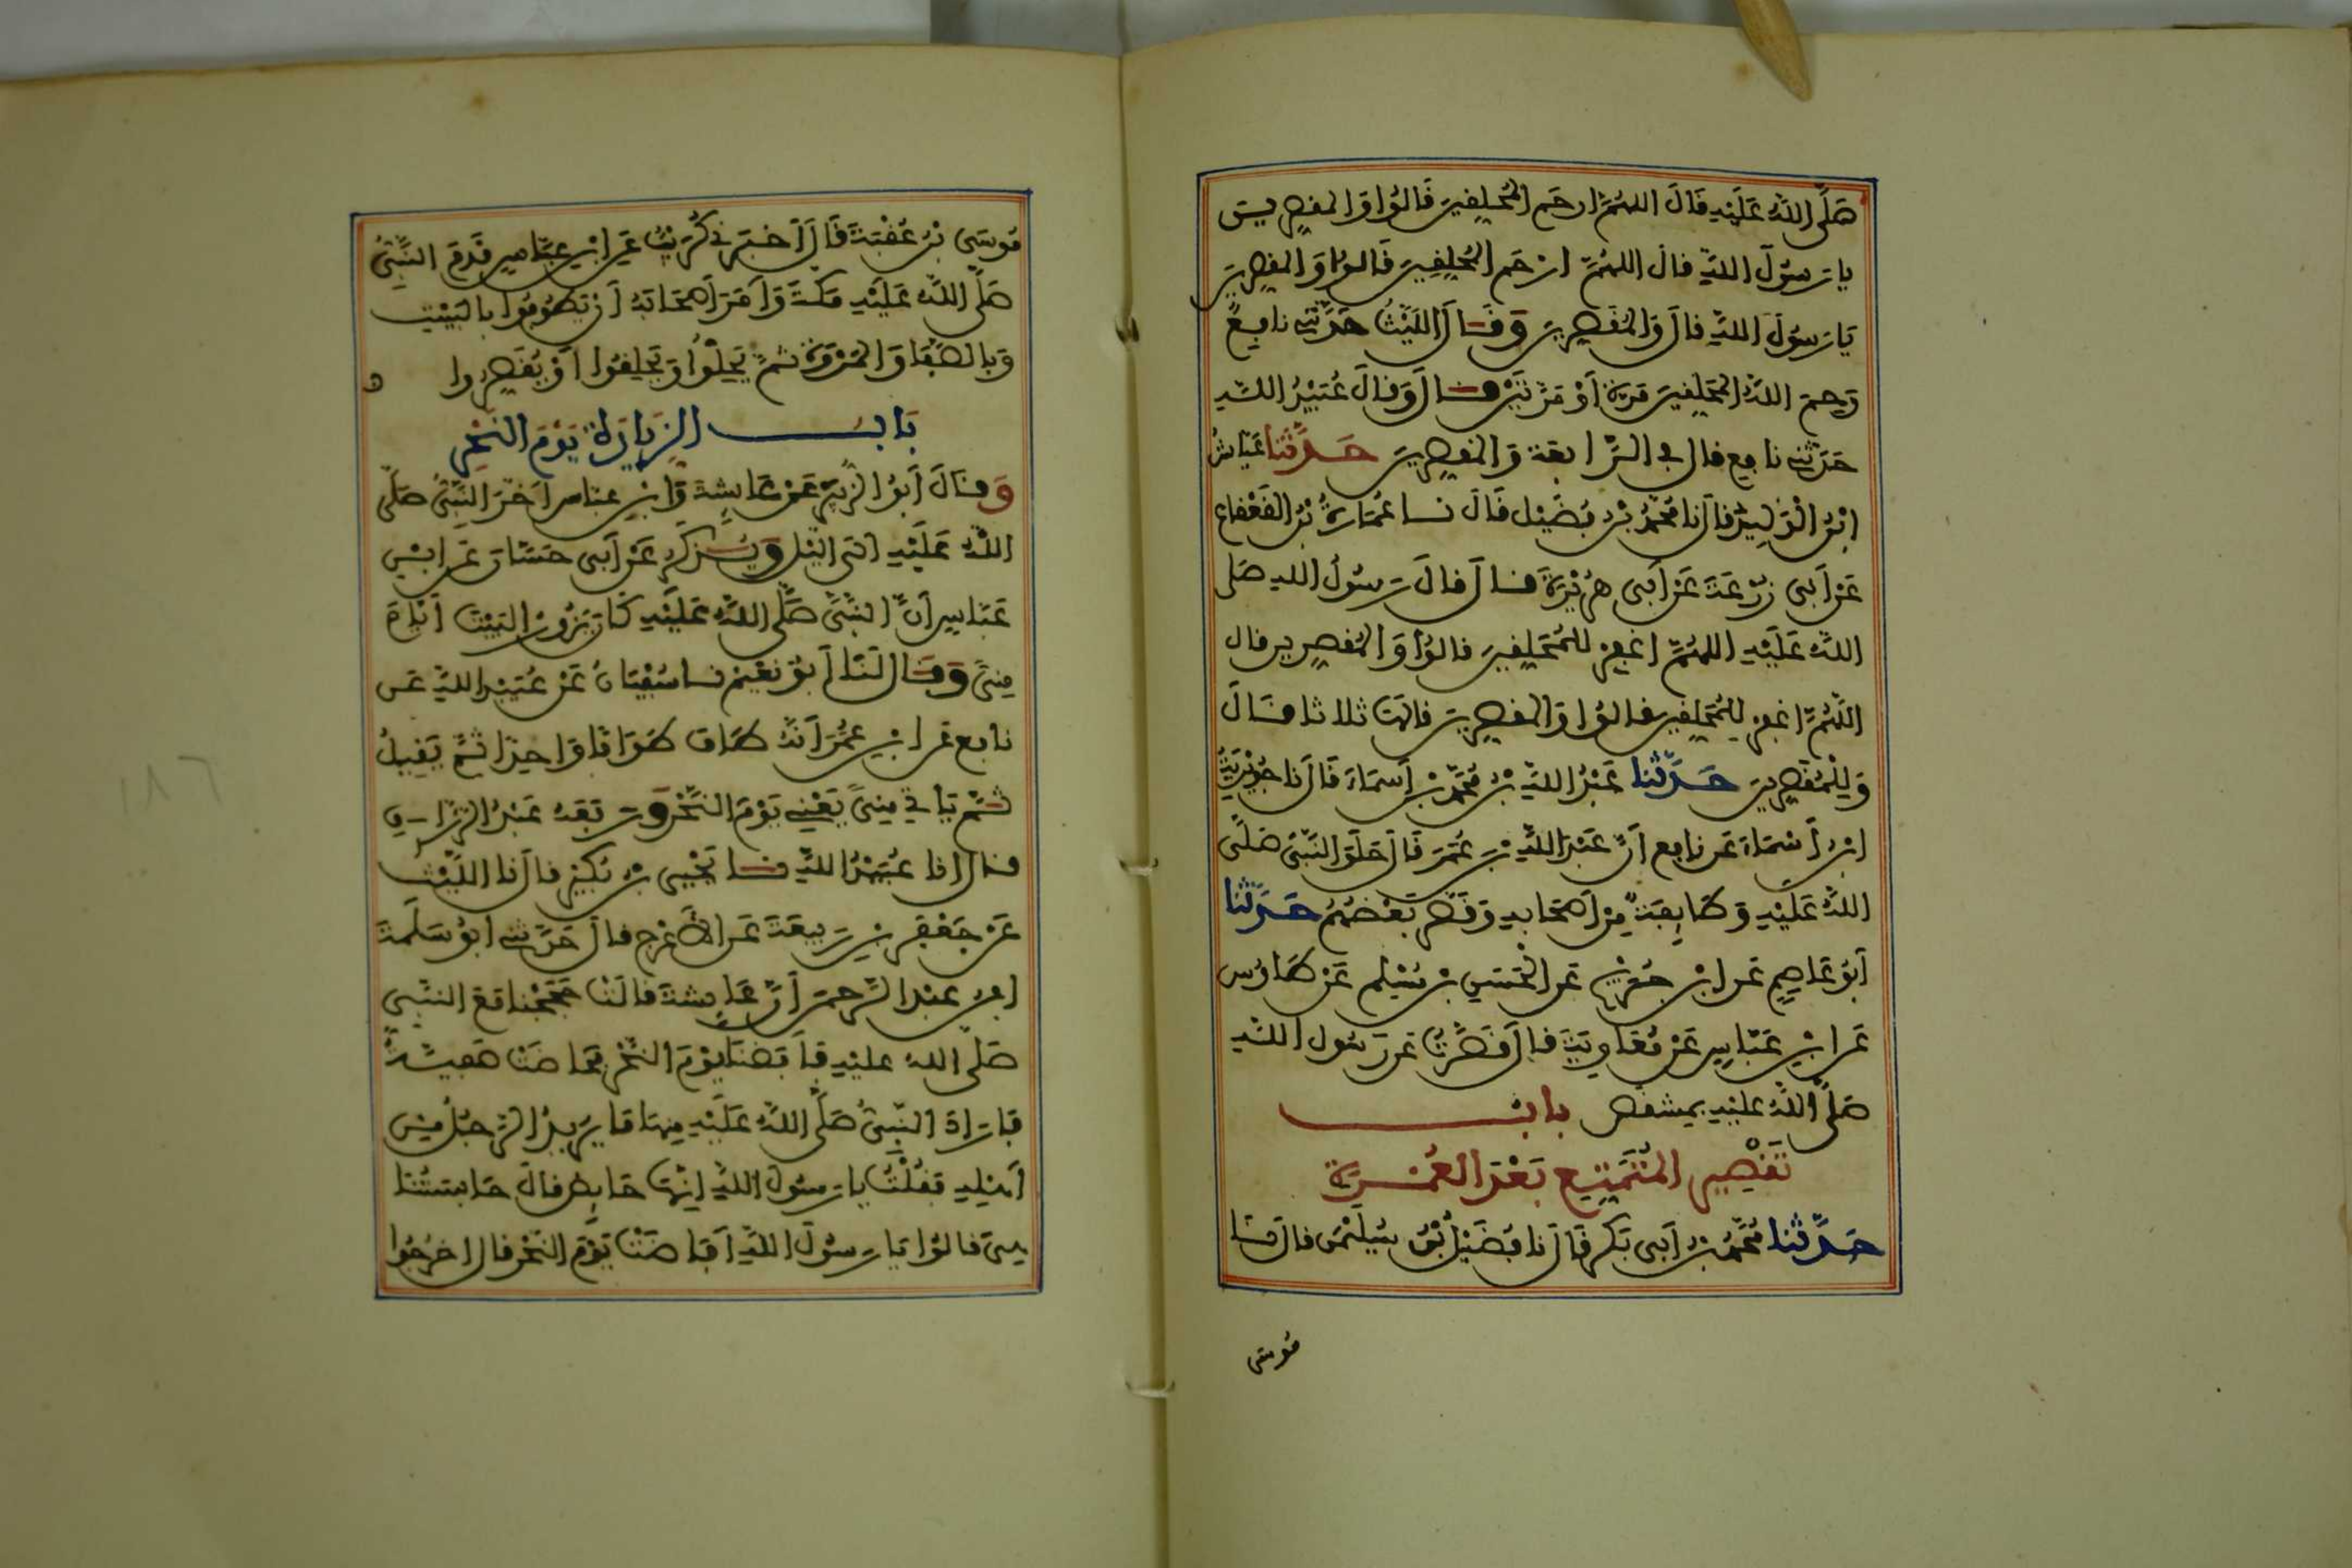 صَلَّى اللَّهُ عَلَيْهِ قَالَ اللهُمَّ ارحَمِ المُحَلِّفِينَ قَالُوا وَالمقَصِّرِينَ
يا رَسُولَ اللَّهِ قال اللهُمَّ ارْحَمِ المُحَلِّفِينَ قَالُوا وَالمقصِّرِينَ
يَا رَسُولَ اللهِ قال وَالمُقَصِّرِينَ وَقَالَ اللَّيْثُ حَدَّثَنِي نافِعٌ
رَحِمَ اللَّهُ المُحَلِّقِينَ مَرَّةً أَوْ مَرَّتَيْنِ قال وَقالَ عُبَيْدُ اللهِ
حَدَّثَنِي نافِع قال في الرَّابِعَةِ وَالمقصِّرِينَ حَدَّثَنا عَيَّاشُ
ابْنُ الْوَلِيدِ قالَ نا مُحَمَّدُ بْنُ فُضَيْلٍ قَالَ نا عُمَارَةُ بْنُ القَعْقاعِ
عَنْ أَبِي زُرْعَةَ عَنْ أَبِي هُرَيْرَةَ قال قالَ رَسُولُ اللهِ صَلى
اللهُ عَلَيْهِ اللهُمَّ اغْفِرْ لِلْمُحَلِّقِينَ قالُوا وَالمُقَصِّرِينَ قال
اللَّهُمَّ اغْفِرْ لِلْمُحَلِّقِينَ قالُوا وَالمقصِّرِينَ قالها ثلاثا قَالَ
وَلِلْمُقَصِّرِينَ حَدَّثَنا عَبْدُ اللَّهِ بْنُ مُحَمَّدِ بْنِ أَسْمَاءَ قَالَ نا جُوَيْرِيَةُ
ابْنُ أَسْمَاءَ عَن نافِعٍ أَنَّ عَبْدَ اللَّهِ بْنَ عُمَرَ قَالَ حَلَقَ النَّبِيُّ صَلَّى
اللهُ عَلَيْهِ وَطَائِفَةٌ مِنْ أَصْحَابِهِ وَقَصَّرَ بَعْضُهُمْ حَدَّثَنا
أَبُو عَاصِمٍ عَنِ ابْنِ جُرَيْجٍ عَنِ الحَسَنِ بْنِ مُسْلِمٍ عَنْ طَاوُسٍ
عَنِ ابْنِ عَبَّاسٍ عَنْ مُعَاوِيَةَ قالَ قَصَّرْتُ عَن رَسُولِ اللهِ
صَلَّى اللهُ عَلَيْهِ بِمِشْقَصٍ بابُ
تَقْصِيرِ المُتَمَتِّعِ بَعْدَ العُمْرَةِ
حَدَّثَنا مُحَمَّدُ بْنُ أَبِي بَكْرٍ قَالَ نا فُضَيْلُ بْنُ سُلَيْمٰنَ قالَ نا
مُوسَى
مُوسَى بْنُ عُقْبَةَ قَالَ أَخْبَرَنِي كُرَيْبٌ عَنِ ابْنِ عَبَّاسٍ قَدِمَ النَّبِيُّ
صَلَّى اللَّهُ عَلَيْهِ مَكَّةَ وَأَمَرَ أَصْحَابَهُ أَنْ يَطُوفُوا بِالْبَيْتِ
وَبِالصَّفَا وَالْمَرْوَةِ ثُمَّ يَحِلُّوا وَيَحْلِقُوا أَوْ يُقَصِّرُوا ه
بَابُ الزِّيَارَةِ يَوْمَ النَّحْرِ
وَقَالَ أَبُو الزُّبَيْرِ عَنْ عَائِشَةَ وَابْنِ عباس أَخَّرَ النَّبِيُّ صَلَّى
اللهُ عَلَيْهِ إلى اللَّيْلِ وَيُذْكَرُ عَنْ أَبِي حَسَّانَ عَنِ ابْنِ
عَبَّاسٍ أَنَّ النَّبِيَّ صَلَّى اللهُ عَلَيْهِ كَانَ يَزُورُ البَيْتَ أَيَّامَ
مِنىً وَقَالَ لَنَا أَبُو نُعَيْمٍ نا سُفْيَانُ عَنْ عُبَيْدِ اللهِ عَن
نافِعٍ عَنِ ابْنِ عُمَرَ أَنَّهُ طَافَ طَوَافًا وَاحِدًا ثُمَّ يَقِيلُ
ثُمَّ يَأتِي مِنىً يَعْنِي يَوْمَ النَّحْرِ وَرَفَعَهُ عَبْدُ الرَّزَّاقِ
قال انا عُبَيْدُ اللهِ نا يَحْيَى بْنُ بُكَيْرٍ قالَ نا اللَّيْثُ
عَنْ جَعْفَرِ بْنِ رَبِيعَةَ عَنِ الأَعْرَجِ قالَ حَدَّثَنِي أبُو سَلَمَةَ
ابْنُ عَبْدِ الرَّحمنِ أَنَّ عَائِشَةَ قالَتْ حَجَجْنا مَعَ النَّبِيِّ
صَلَّى اللهُ عليْهِ فَأَفَضْنَا يَوْمَ النَّحْرِ فَحَاضَتْ صَفِيَّةُ
فَأَرَادَ النَّبِيُّ صَلَّى اللَّهُ عَلَيْهِ مِنْهَا مَا يُرِيدُ الرَّجُلُ مِنْ
أَهْلِهِ فَقُلْتُ يا رَسُولَ اللَّهِ إِنَّهَا حَائِضٌ قالَ حَابِسَتُنَا
هِيَ قالُوا يَا رَسُولَ اللَّهِ أَفَاضَتْ يَوْمَ النَّحْرِ قال اخْرُجُوا
١٨٦